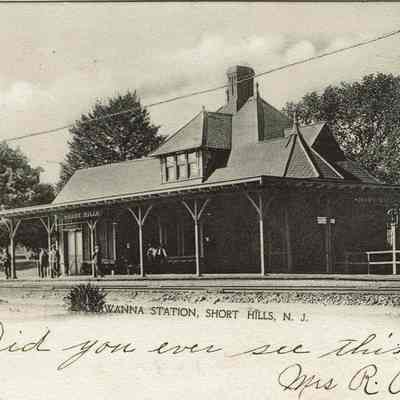 SHORT HILLS
AWANNA STATION, SHORT HILLS, N. J.
Did you ever see this
Mrs R.